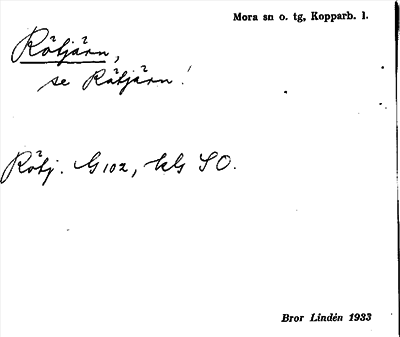 Mora sn o. tg, Kopparb. l.
Rötjärn,
se Rätjärn!
Rötj. G102, kls SO.
Bror Lindén 1933